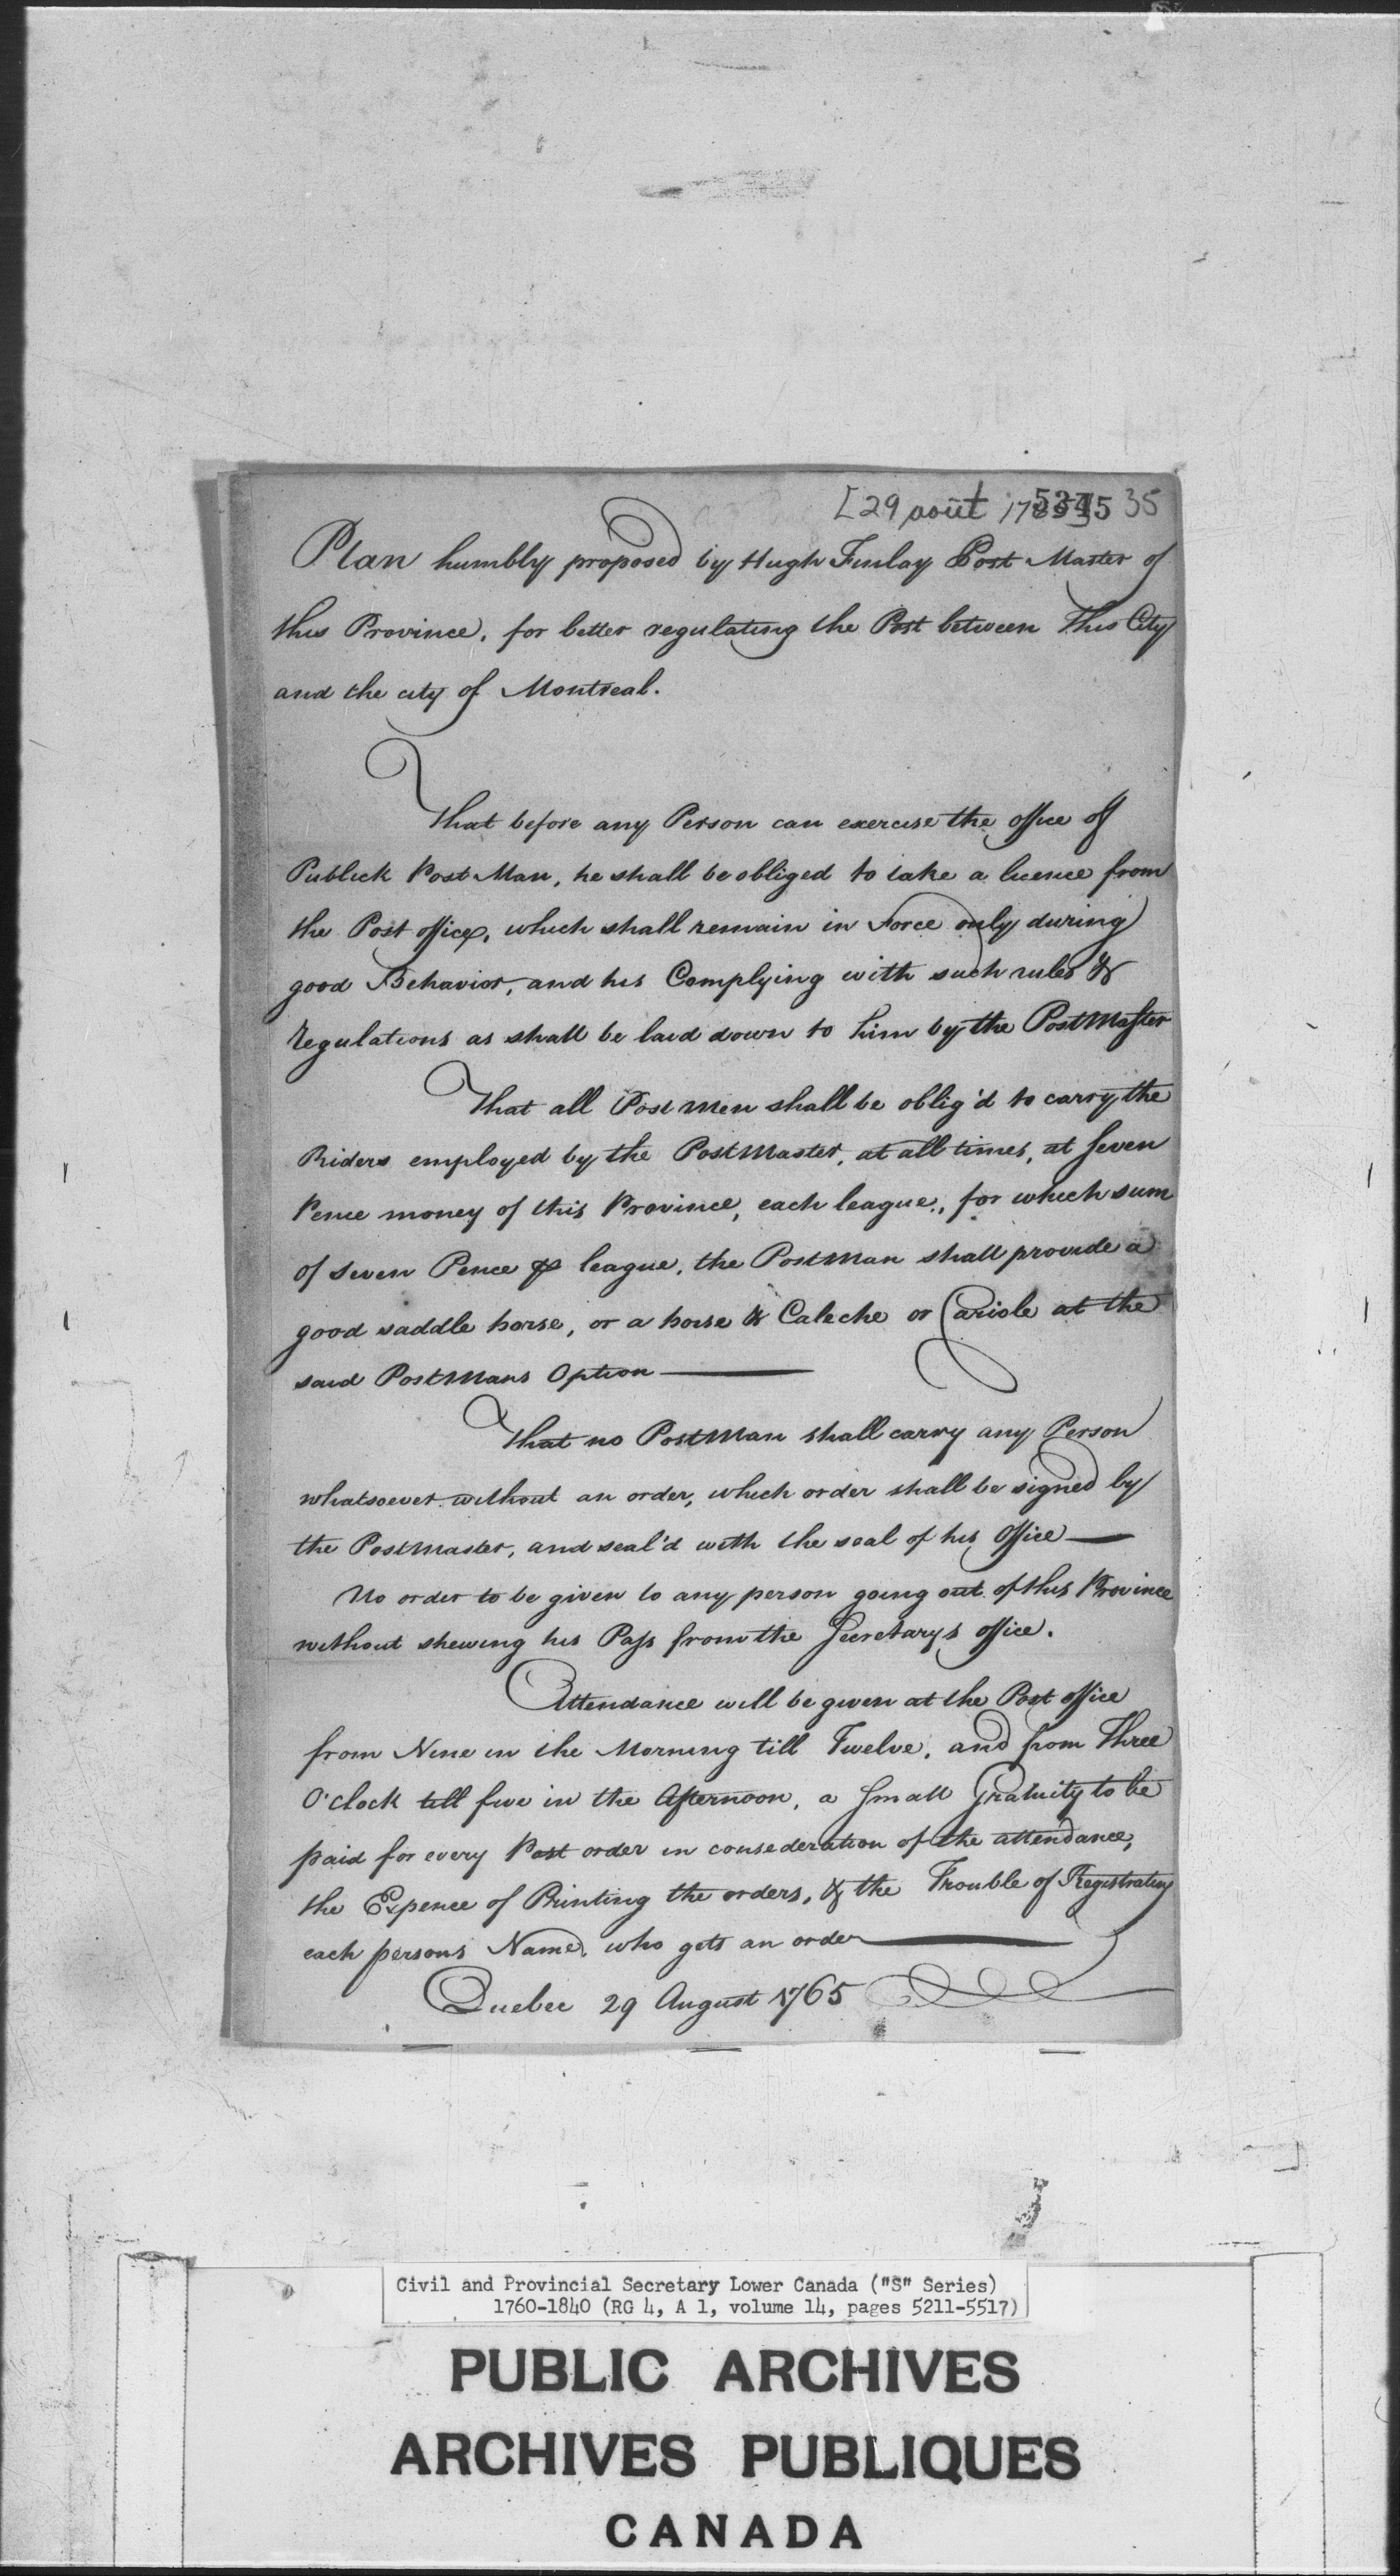 [29 août 1765] 5345 35
Plan humbly proposed by Hugh Finlay Post Master of
this Province, for better regulating the Post between this City
and the city of Montreal.
That before any Person can exercise the office of
Publick Post Man, he shall be obliged to take a licence from
the Post office, which shall remain in Force only during
good Behavior, and his Complying with such rules &
regulations as shall be laid down to him by the PostMaster
That all Post men shall be oblig'd to carry the
Riders employed by the PostMaster, at all times, at Seven
Pence money of this Province, each league, for which sum
of seven Pence ⅌ league, the PostMan shall provide a
good saddle horse, or a horse & Caleche or Cariole at the
said PostMans Option
That no PostMan shall carry any Person
whatsoever without an order, which order shall be signed by
the PostMaster, and seal'd with the seal of his Office
No order to be given to any person going out of this Province
without shewing his Pass from the Secretary's office.
Attendance will be given at the Post office
from Nine in the Morning till Twelve, and from Three
O'clock till five in the Afternoon, a Small Gratuity to be
paid for every Post order in consederation of the attendance,
the Expence of Printing the orders, & the Trouble of Registrating
each persons Name, who gets an order
Quebec 29 August 1765
Civil and Provincial Secretary Lower Canada ("S" Series)
1760-1840 (RG 4, A 1, volume 14, pages 5211-5517)
PUBLIC ARCHIVES
ARCHIVES PUBLIQUES
CANADA